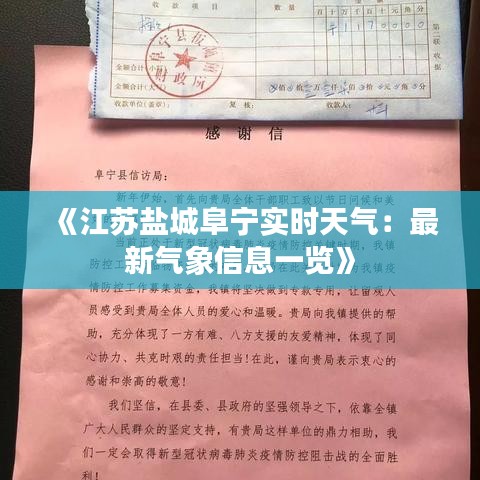 百十万千百十元角分
¥1170000
第二联收据
金额合计(小写)
金额合计(大写)
收款单位(盖章):
复核:
收款人:
阜宁县板湖镇
财政所
感谢信
阜宁县信访局:
新年伊始,首先向贵局全体干部职工致以节日问候和美
《江苏盐城阜宁实时天气:最
新气象信息一览》
疫情防控工作募集资金,我镇将坚决做到专款专用,让留观人
员感受到贵局全体人员的爱心和温暖。贵局向我镇提供的帮
助,充分体现了一方有难、八方支援的友爱精神,体现了同
心协力、共克时艰的责任担当!在此,谨向贵局表示衷心的
感谢和崇高的敬意!
我们坚信,在县委、县政府的坚强领导之下,依靠全镇
广大人民群众的坚定支持,有贵局这样单位的鼎力相助,我
们一定会取得新型冠状病毒肺炎疫情防控阻击战的全面胜
利!